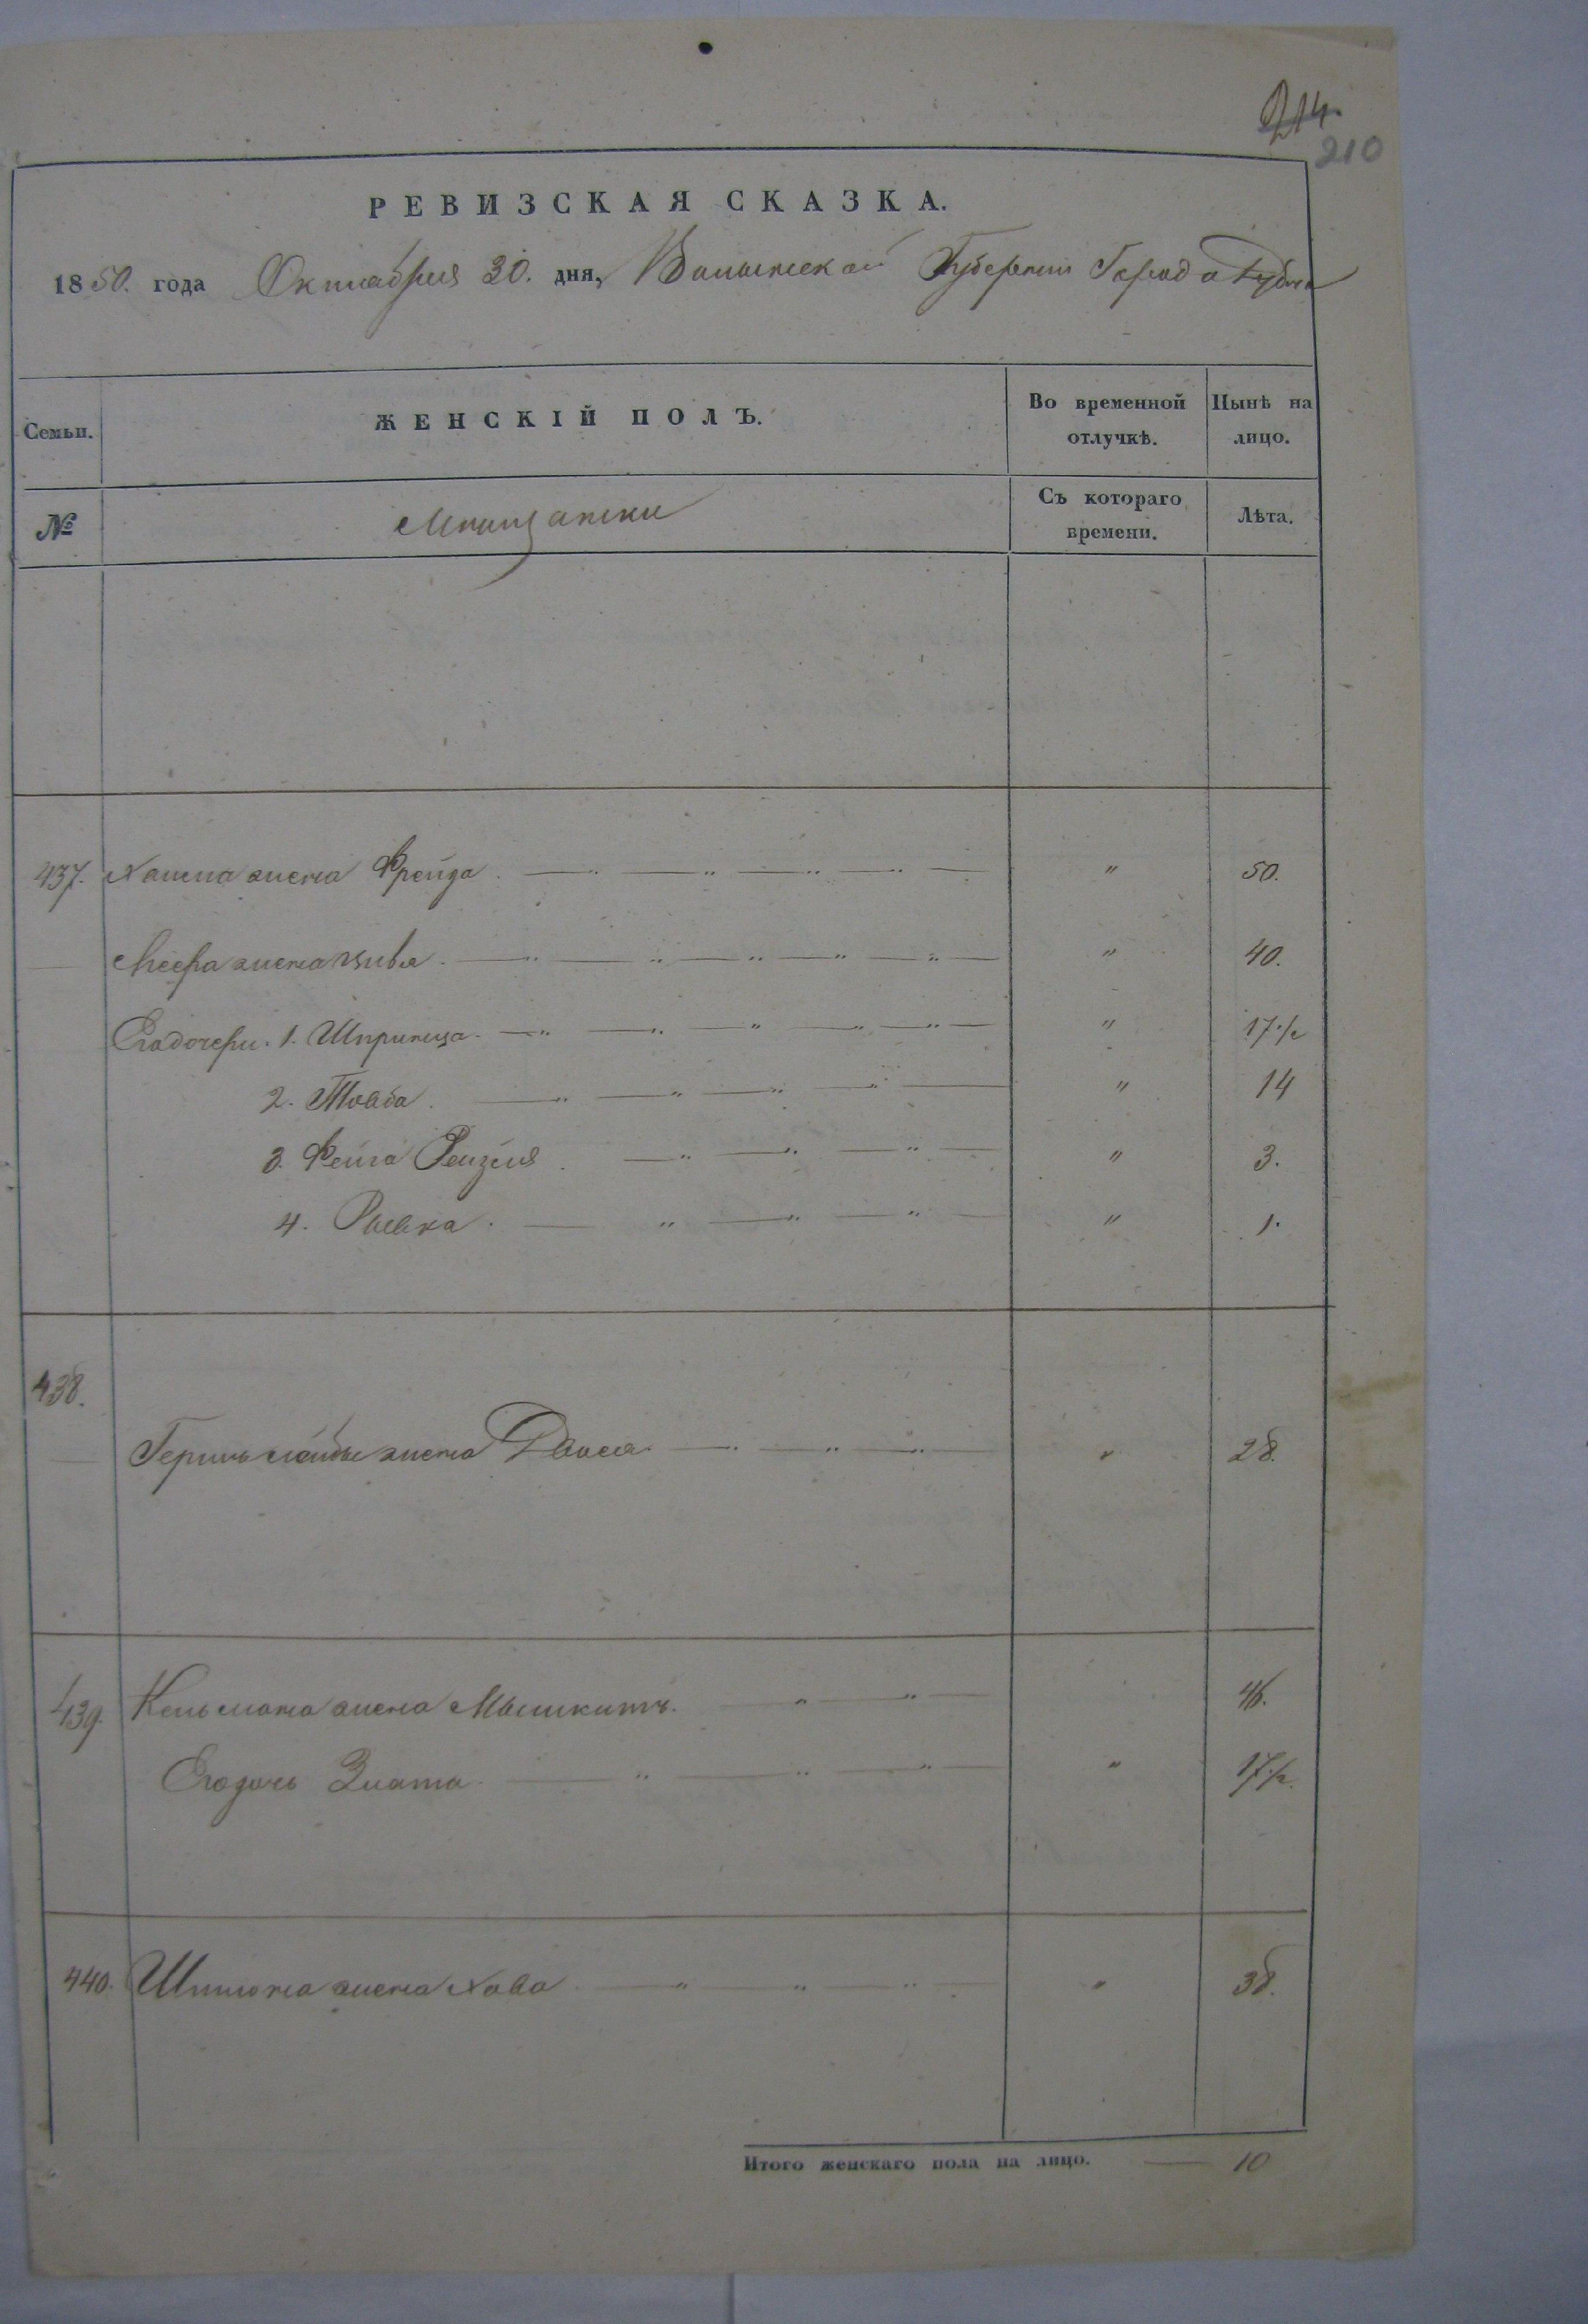 214.
210
РЕВИЗСКАЯ СКАЗКА.
1850. года Октабрия 30. дня, Волынской Губернии Города Дубна
Семьи. ЖЕНСКІЙ ПОЛЪ. Во временной отлучкѣ. Нынѣ на лицо.
№ Мѣщанки Съ котораго времени. Лѣта.
437. Хаима жена Фрейда " 50.
Меера жена Цивья " 40.
Его дочери. 1. Шпринца " 17 1/2
2. Товба " 14
3. Фейга Рейзля " 3.
4. Рывка " 1.
438.
Герша Лейбы жена Двося " 28.
439. Кельмана жена 46.
Его дочь Злата " 17 1/2.
440. жена Хава " 38.
Итого женскаго пола на лицо. 10